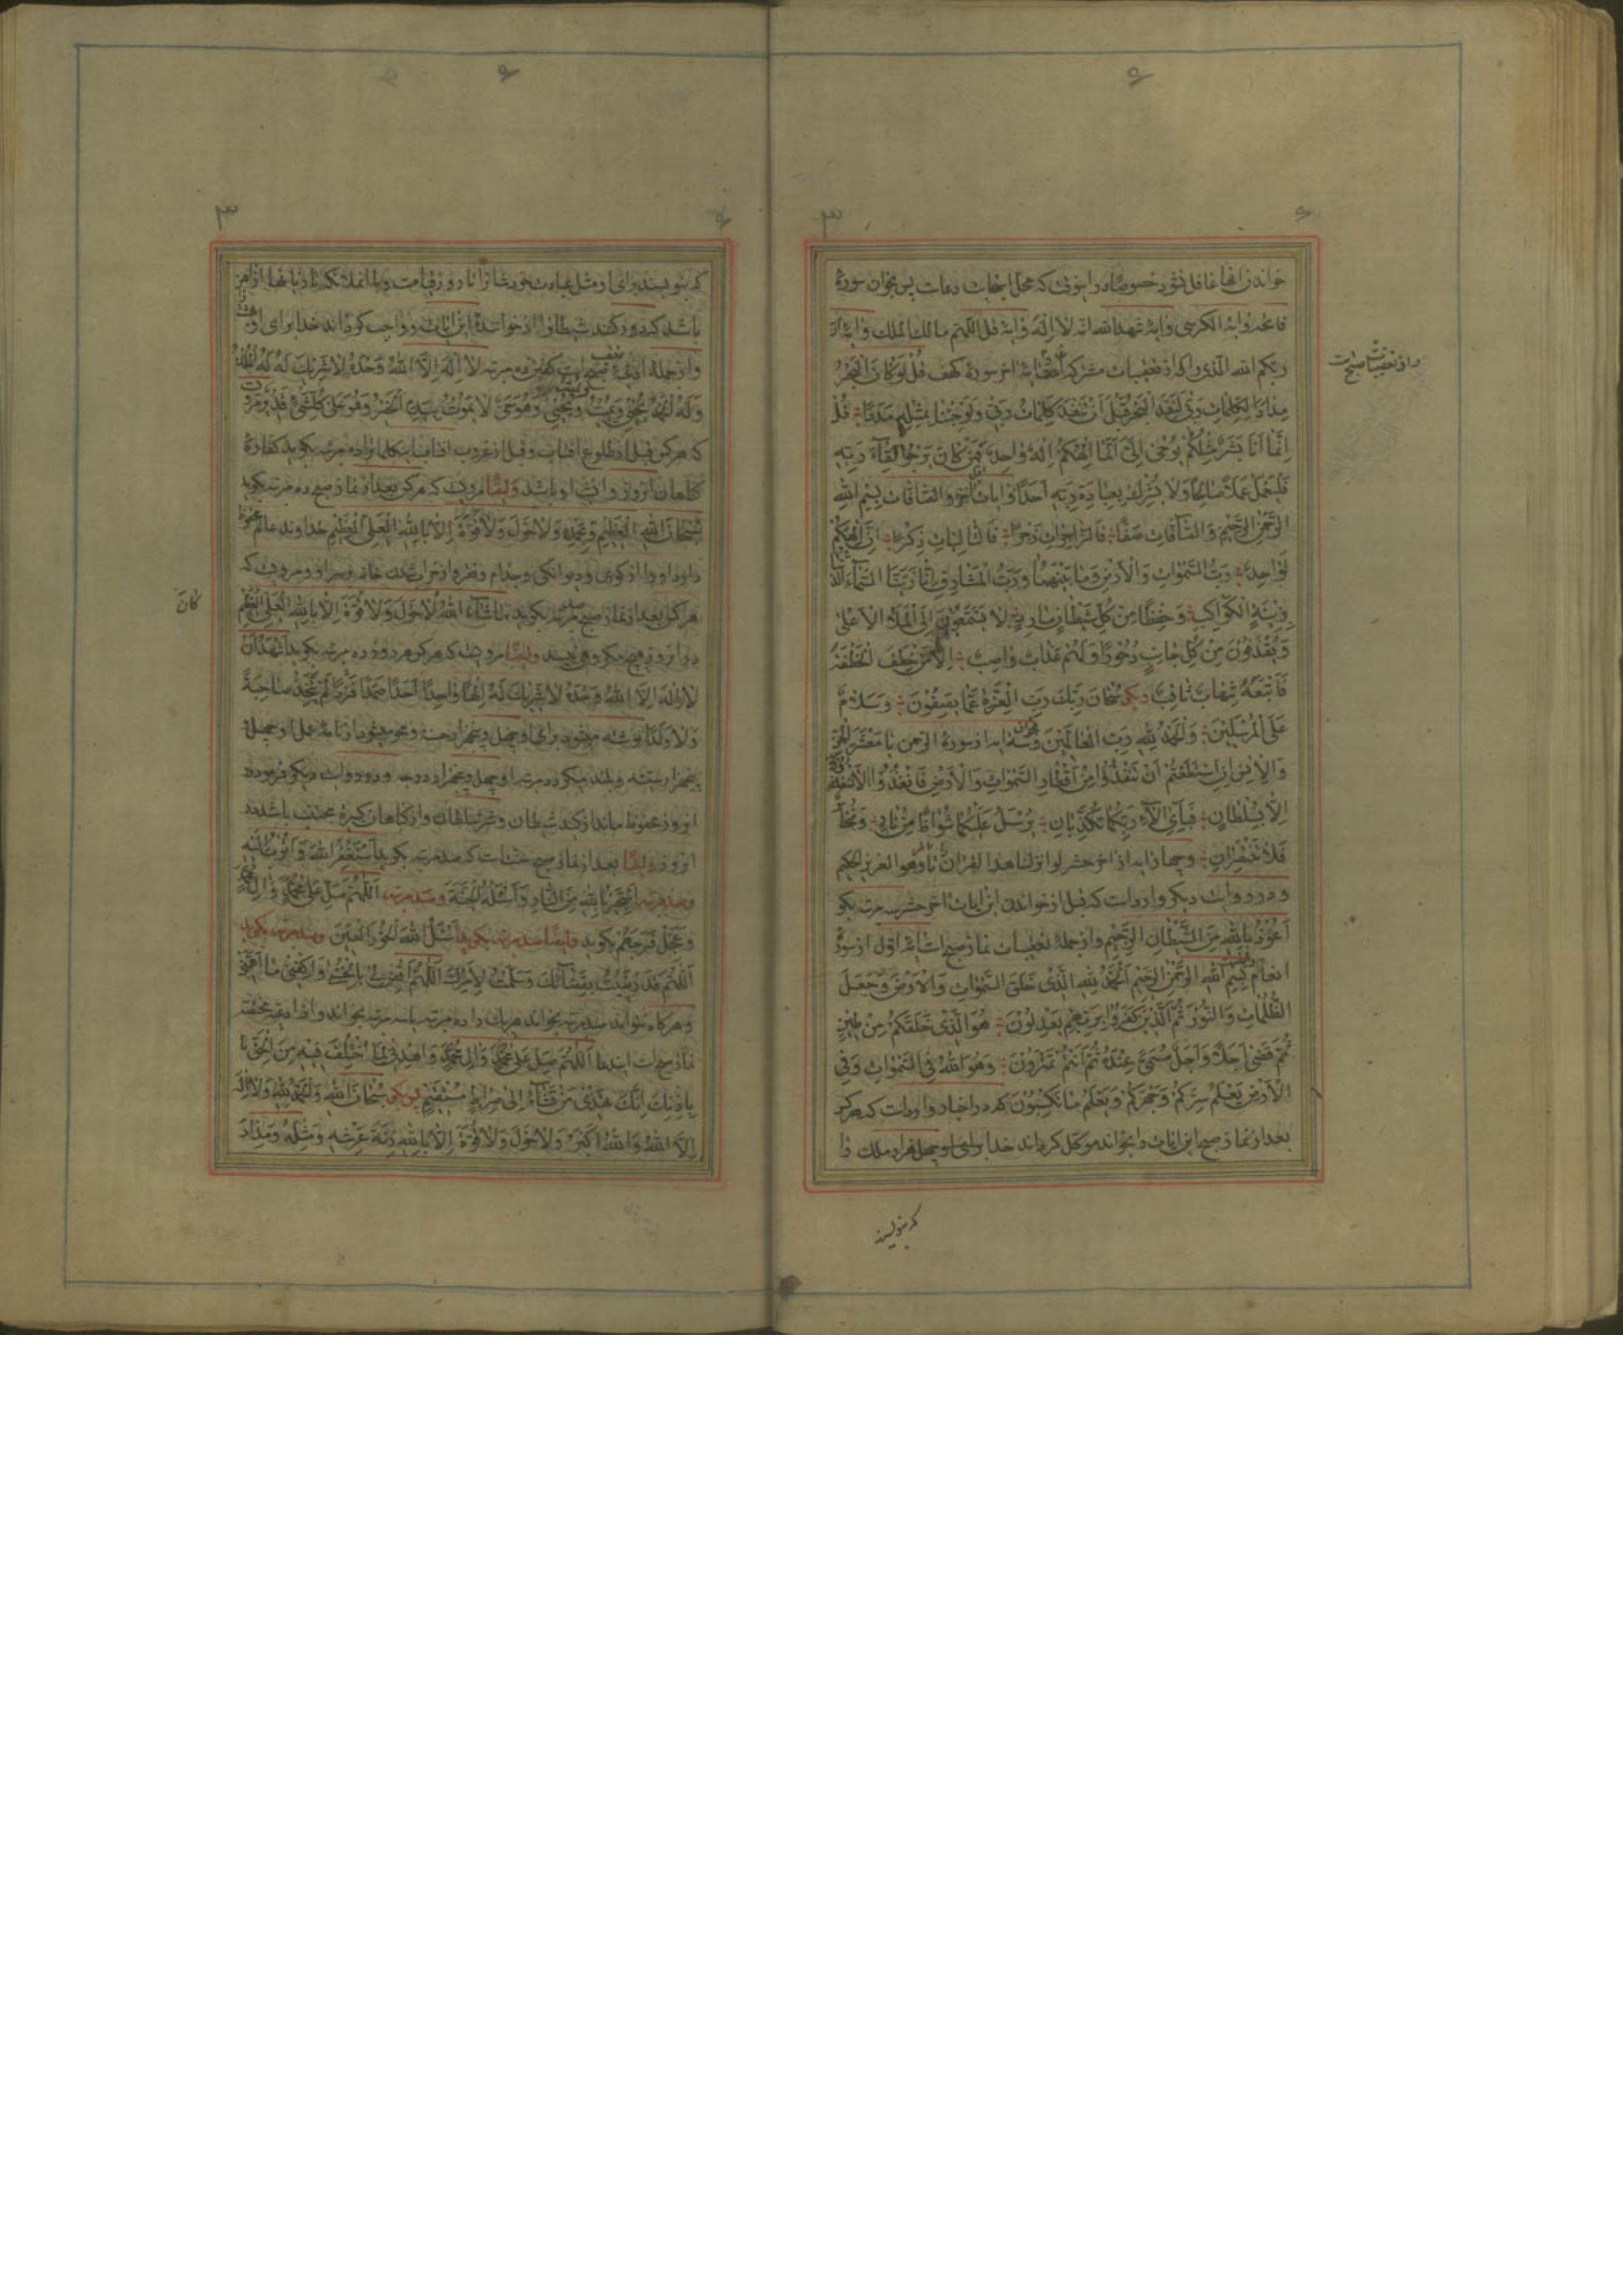 خواندن انها غافل نشود خصوصا در اینوقت که محل استجابت دعاست پس بخوان سورهٔ
فاتحه و ایة الکرسی و ایهٔ شهد الله انه لا اله و ایهٔ قل اللهم مالک الملک و ایهٔ ان
ربکم الله الذی را که از تعقیبات مشترکه است ایهٔ اخر سورهٔ کهف قُلْ لَوْ كَانَ الْبَحْرُ
مِدَادًا لِكَلِمَاتِ رَبِّي لَنَفِدَ الْبَحْرُ قَبْلَ أَنْ تَنْفَدَ كَلِمَاتُ رَبِّي وَلَوْ جِئْنَا بِمِثْلِهِ مَدَدًا قُلْ
إِنَّمَا أَنَا بَشَرٌ مِثْلُكُمْ يُوحَى إِلَيَّ أَنَّمَا إِلَهُكُمْ إِلَهٌ وَاحِدٌ فَمَنْ كَانَ يَرْجُوا لِقَآءَ رَبِّهِ
فَلْيَعْمَلْ عَمَلًا صَالِحًا وَلَا يُشْرِكْ بِعِبَادَةِ رَبِّهِ أَحَدًا و ایات و الصافات بِسْمِ اللهِ
الرَّحْمَنِ الرَّحِيمِ وَالصَّآفَّاتِ صَفًّا فَالزَّاجِرَاتِ زَجْرًا فَالتَّالِيَاتِ ذِكْرًا إِنَّ إِلَهَكُمْ
لَوَاحِدٌ رَبُّ السَّمَوَاتِ وَالْأَرْضِ وَمَا بَيْنَهُمَا وَرَبُّ الْمَشَارِقِ إِنَّا زَيَّنَّا السَّمَآءَ الدُّنْيَا
بِزِينَةٍ الْكَوَاكِبِ وَحِفْظًا مِنْ كُلِّ شَيْطَانٍ مَارِدٍ لَا يَسَّمَّعُونَ إِلَى الْمَلَإِ الْأَعْلَى
وَيُقْذَفُونَ مِنْ كُلِّ جَانِبٍ دُحُورًا وَلَهُمْ عَذَابٌ وَاصِبٌ إِلَّا مَنْ خَطِفَ الْخَطْفَةَ
فَأَتْبَعَهُ شِهَابٌ ثَاقِبٌ دیگر سُبْحَانَ رَبِّكَ رَبِّ الْعِزَّةِ عَمَّا يَصِفُونَ وَسَلَامٌ
عَلَى الْمُرْسَلِينَ وَالْحَمْدُ لِلَّهِ رَبِّ الْعَالَمِينَ و سه ایه از سورهٔ الرحمن يَا مَعْشَرَ الْجِنِّ
وَالْإِنْسِ إِنِ اسْتَطَعْتُمْ أَنْ تَنْفُذُوا مِنْ أَقْطَارِ السَّمَوَاتِ وَالْأَرْضِ فَانْفُذُوا لَا تَنْفُذُونَ
إِلَّا بِسُلْطَانٍ فَبِأَيِّ آلَآءِ رَبِّكُمَا تُكَذِّبَانِ يُرْسَلُ عَلَيْكُمَا شُوَاظٌ مِنْ نَارٍ وَنُحَاسٌ
فَلَا تَنْتَصِرَانِ و چهار ایه از اخر حشر لو انزلنا هذا القران تا وهو العزیز الحکیم
و در روایت دیگر وارد است که قبل از خواندن این ایات اخر حشر سه مرتبه بگو
أَعُوذُ بِاللهِ مِنَ الشَّيْطَانِ الرَّجِيمِ و از جملهٔ تعقیبات نماز صبح است ایهٔ اول از سورهٔ
انعام بِسْمِ اللهِ الرَّحْمَنِ الرَّحِيمِ الْحَمْدُ لِلَّهِ الَّذِي خَلَقَ السَّمَوَاتِ وَالْأَرْضَ وَجَعَلَ
الظُّلُمَاتِ وَالنُّورَ ثُمَّ الَّذِينَ كَفَرُوا بِرَبِّهِمْ يَعْدِلُونَ هُوَ الَّذِي خَلَقَكُمْ مِنْ طِينٍ
ثُمَّ قَضَى أَجَلًا وَأَجَلٌ مُسَمًّى عِنْدَهُ ثُمَّ أَنْتُمْ تَمْتَرُونَ وَهُوَ اللهُ فِي السَّمَوَاتِ وَفِي
الْأَرْضِ يَعْلَمُ سِرَّكُمْ وَجَهْرَكُمْ وَيَعْلَمُ مَا تَكْسِبُونَ که در اخبار وارد است که هر که
بعد از نماز صبح این ایات را بخواند موکل گرداند خدا برای او چهل هزار ملک را
و از تعقیبات صبح است
که بنویسند
که بنویسند برای او مثل عبادت خود شانرا تا روز قیامت و با انملائکه
باشد که دور کنند شیطانرا از خوانندهٔ این ایات و واجب گرداند خدا برای او
و از جملهٔ تعقیب صبح است گفتن ده مرتبه لَا إِلَهَ إِلَّا اللهُ وَحْدَهُ لَا شَرِيكَ لَهُ لَهُ الْمُلْكُ
وَلَهُ الْحَمْدُ يُحْيِي وَيُمِيتُ وَيُمِيتُ وَيُحْيِي وَهُوَ حَيٌّ لَا يَمُوتُ بِيَدِهِ الْخَيْرُ وَهُوَ عَلَى كُلِّ شَيْءٍ قَدِيرٌ
که هر کس قبل از طلوع افتاب و قبل از غروب افتاب این کلمات را ده مرتبه بگوید کفارهٔ
گناهان انروز و انشب او باشد و ایضا مرویست که هر کس بعد از نماز صبح ده مرتبه بگوید
سُبْحَانَ اللهِ الْعَظِيمِ وَبِحَمْدِهِ وَلَا حَوْلَ وَلَا قُوَّةَ إِلَّا بِاللهِ الْعَلِيِّ الْعَظِيمِ خداوند عالم محفوظ
دارد او را از کوری و دیوانگی و جذام و فقر و از خراب شدن خانه بر سر او و مرویست که
هر کس بعد از نماز صبح صد مرتبه بگوید مَا شَآءَ اللهُ كَانَ لَا حَوْلَ وَلَا قُوَّةَ إِلَّا بِاللهِ الْعَلِيِّ الْعَظِيمِ
کان
در انروز هیچ مکروهی نبیند و ایضا مرویست که هر که هر روز ده مرتبه بگوید أَشْهَدُ أَنْ
لَا إِلَهَ إِلَّا اللهُ وَحْدَهُ لَا شَرِيكَ لَهُ إِلَهًا وَاحِدًا أَحَدًا صَمَدًا فَرْدًا لَمْ يَتَّخِذْ صَاحِبَةً
وَلَا وَلَدًا نوشته میشود برای او چهل و پنجهزار حسنه و محو میشود از نامهٔ عمل او چهل و
پنجهزار سیئه و بلند میگردد مرتبه او چهل و پنجهزار درجه و در روایت دیگر فرمود در
انروز محفوظ ماند از کید شیطان و شر سلطان و از گناهان کبیره مجتنب باشد در
انروز و ایضا بعد از نماز صبح سنت است که صد مرتبه بگوید أَسْتَغْفِرُ اللهَ وَأَتُوبُ إِلَيْهِ
و صد مرتبه أَسْتَجِيرُ بِاللهِ مِنَ النَّارِ وَأَسْئَلُهُ الْجَنَّةَ و صد مرتبه اللَّهُمَّ صَلِّ عَلَى مُحَمَّدٍ وَآلِ مُحَمَّدٍ
وَعَجِّلْ فَرَجَهُمْ بگوید و ایضا صد مرتبه بگوید أَسْئَلُ اللهَ الْحُورَ الْعِينَ و صد مرتبه بگوید
اللَّهُمَّ قَدْ رَضِيتُ بِقَضَائِكَ وَسَلَّمْتُ لِأَمْرِكَ اللَّهُمَّ اقْضِ لِي بِالْحُسْنَى وَاكْفِنِي مَا أَهَمَّنِي
و هرگاه نتواند صد مرتبه بخواند هر یک را ده مرتبه یا سه مرتبه بخواند
نماز صبح است ایندعا اللَّهُمَّ صَلِّ عَلَى مُحَمَّدٍ وَآلِ مُحَمَّدٍ وَاهْدِنِي لِمَا اخْتُلِفَ فِيهِ مِنَ الْحَقِّ
بِإِذْنِكَ إِنَّكَ تَهْدِي مَنْ تَشَآءُ إِلَى صِرَاطٍ مُسْتَقِيمٍ پس بگو سُبْحَانَ اللهِ وَالْحَمْدُ لِلَّهِ وَلَا إِلَهَ
إِلَّا اللهُ وَاللهُ أَكْبَرُ وَلَا حَوْلَ وَلَا قُوَّةَ إِلَّا بِاللهِ زِنَةَ عَرْشِهِ وَمِثْلَهُ وَمِدَادَ